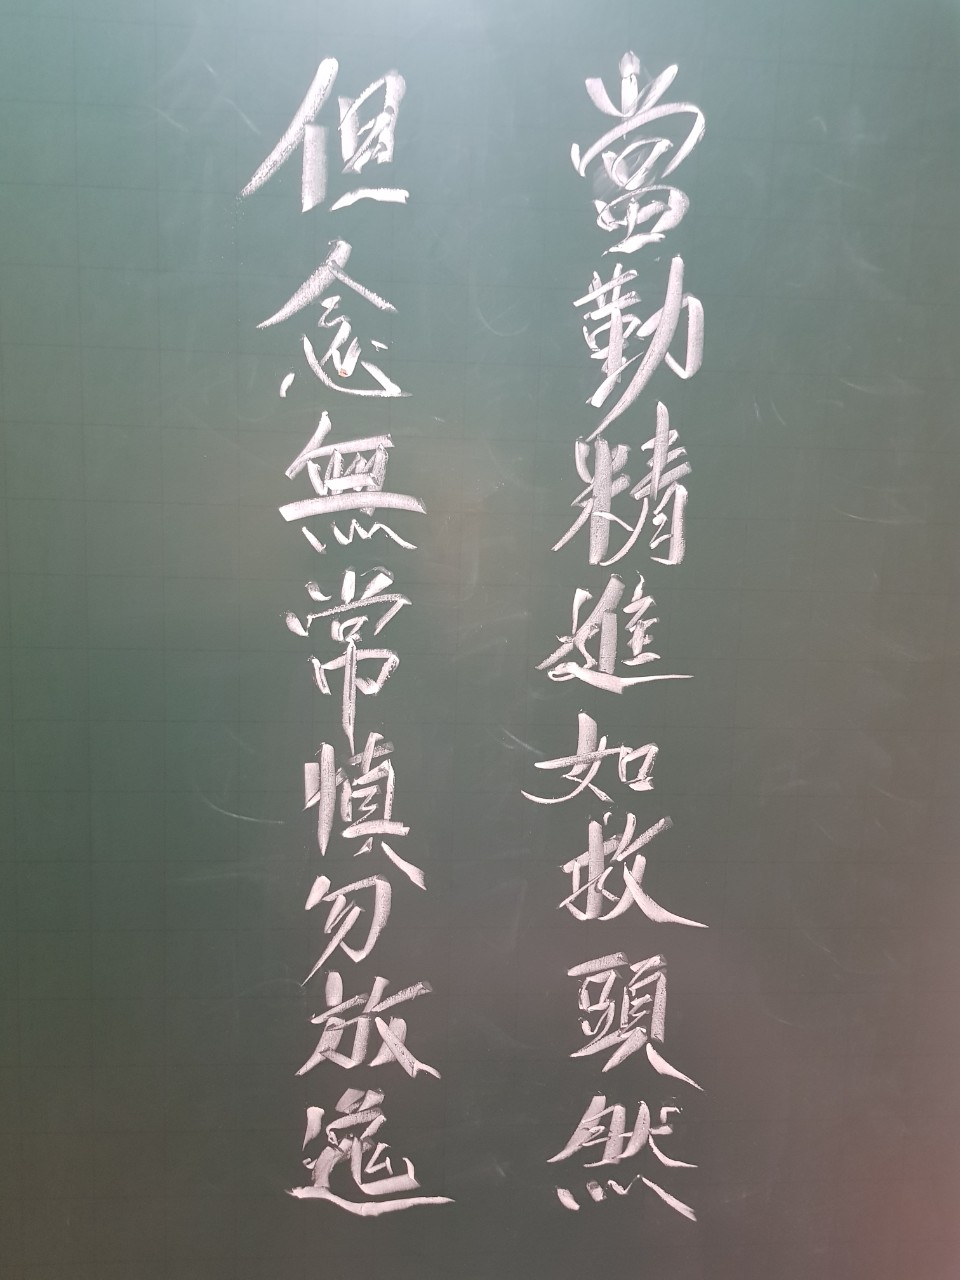 當勤精進如救頭然
但念無常慎勿放逸